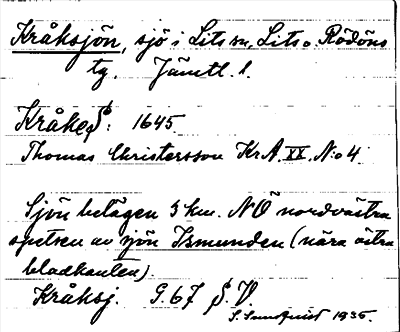 Kråksjön, sjö i Lits sn, Lits o. Rödöns
tg. Jämtl. l.
Kråke S: 1645
Thomas Christersson KrA XX. N:o 4.
Sjön belägen 3 km. NÖ nordvästra
spetsen av sjön Ismunden (nära östra
bladkanten)
Kråksj. G. 67 S V.
S. Sundqvist 1935.